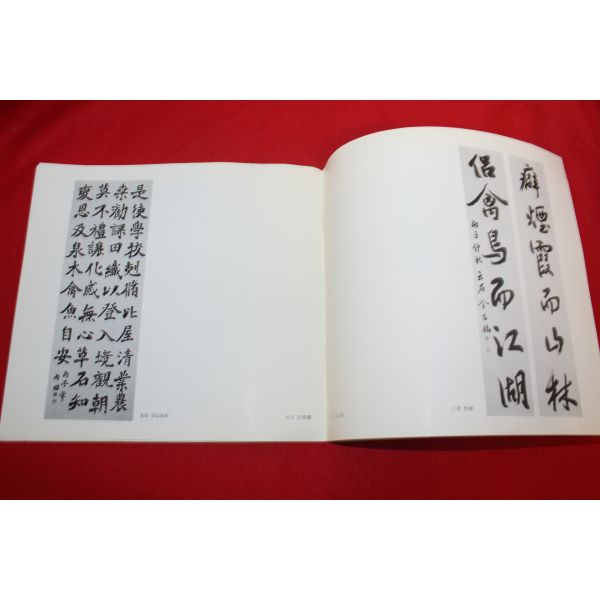 是使學校剋脩比屋清業農
桒勸課田織以登入境觀朝
莫不禮讓化感無心草石知
変恩及泉木禽魚自安
丙子年
癖煙霞而山林
侶禽鳥而江湖
丙子仲秋